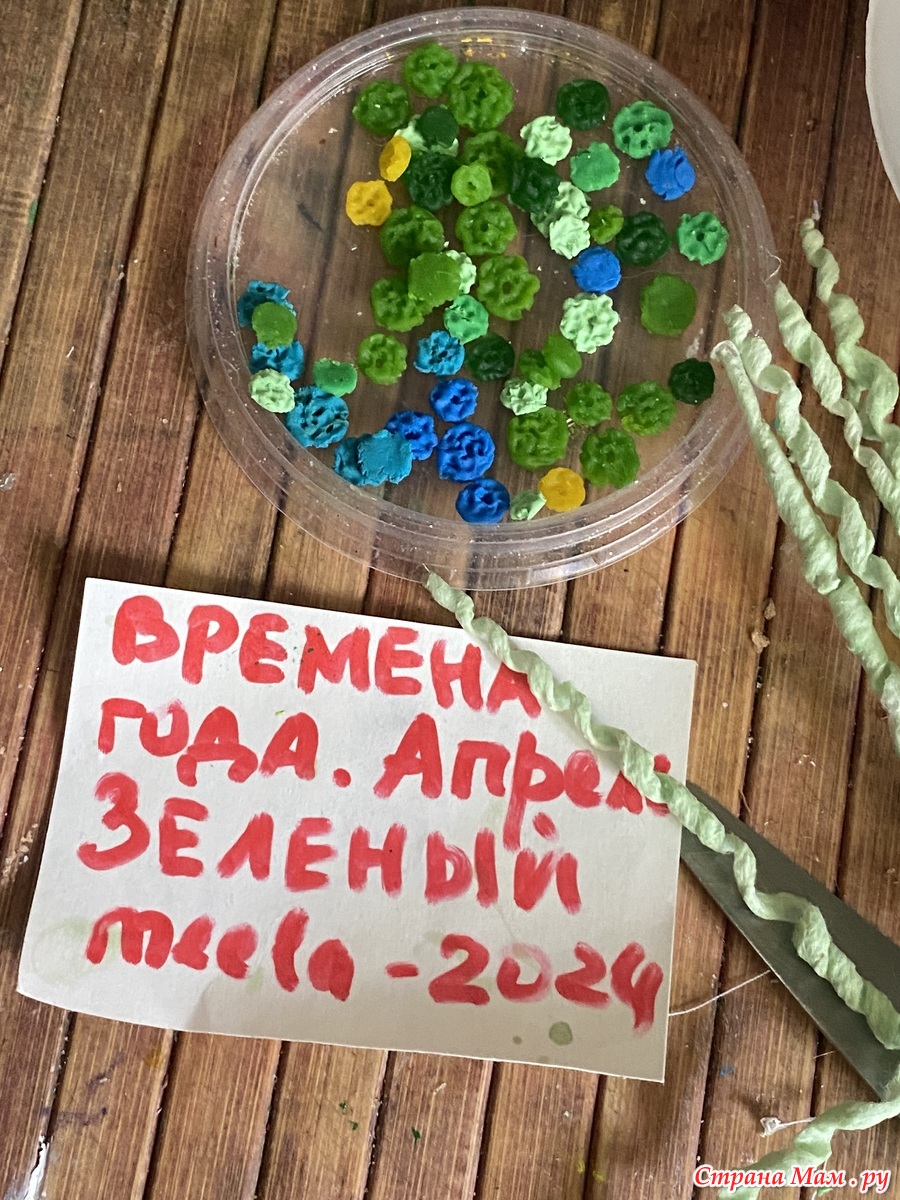 ВРЕМЕНА
года. Апрель
ЗЕЛЕНЫЙ
meela -2024
Страна Мам.ру